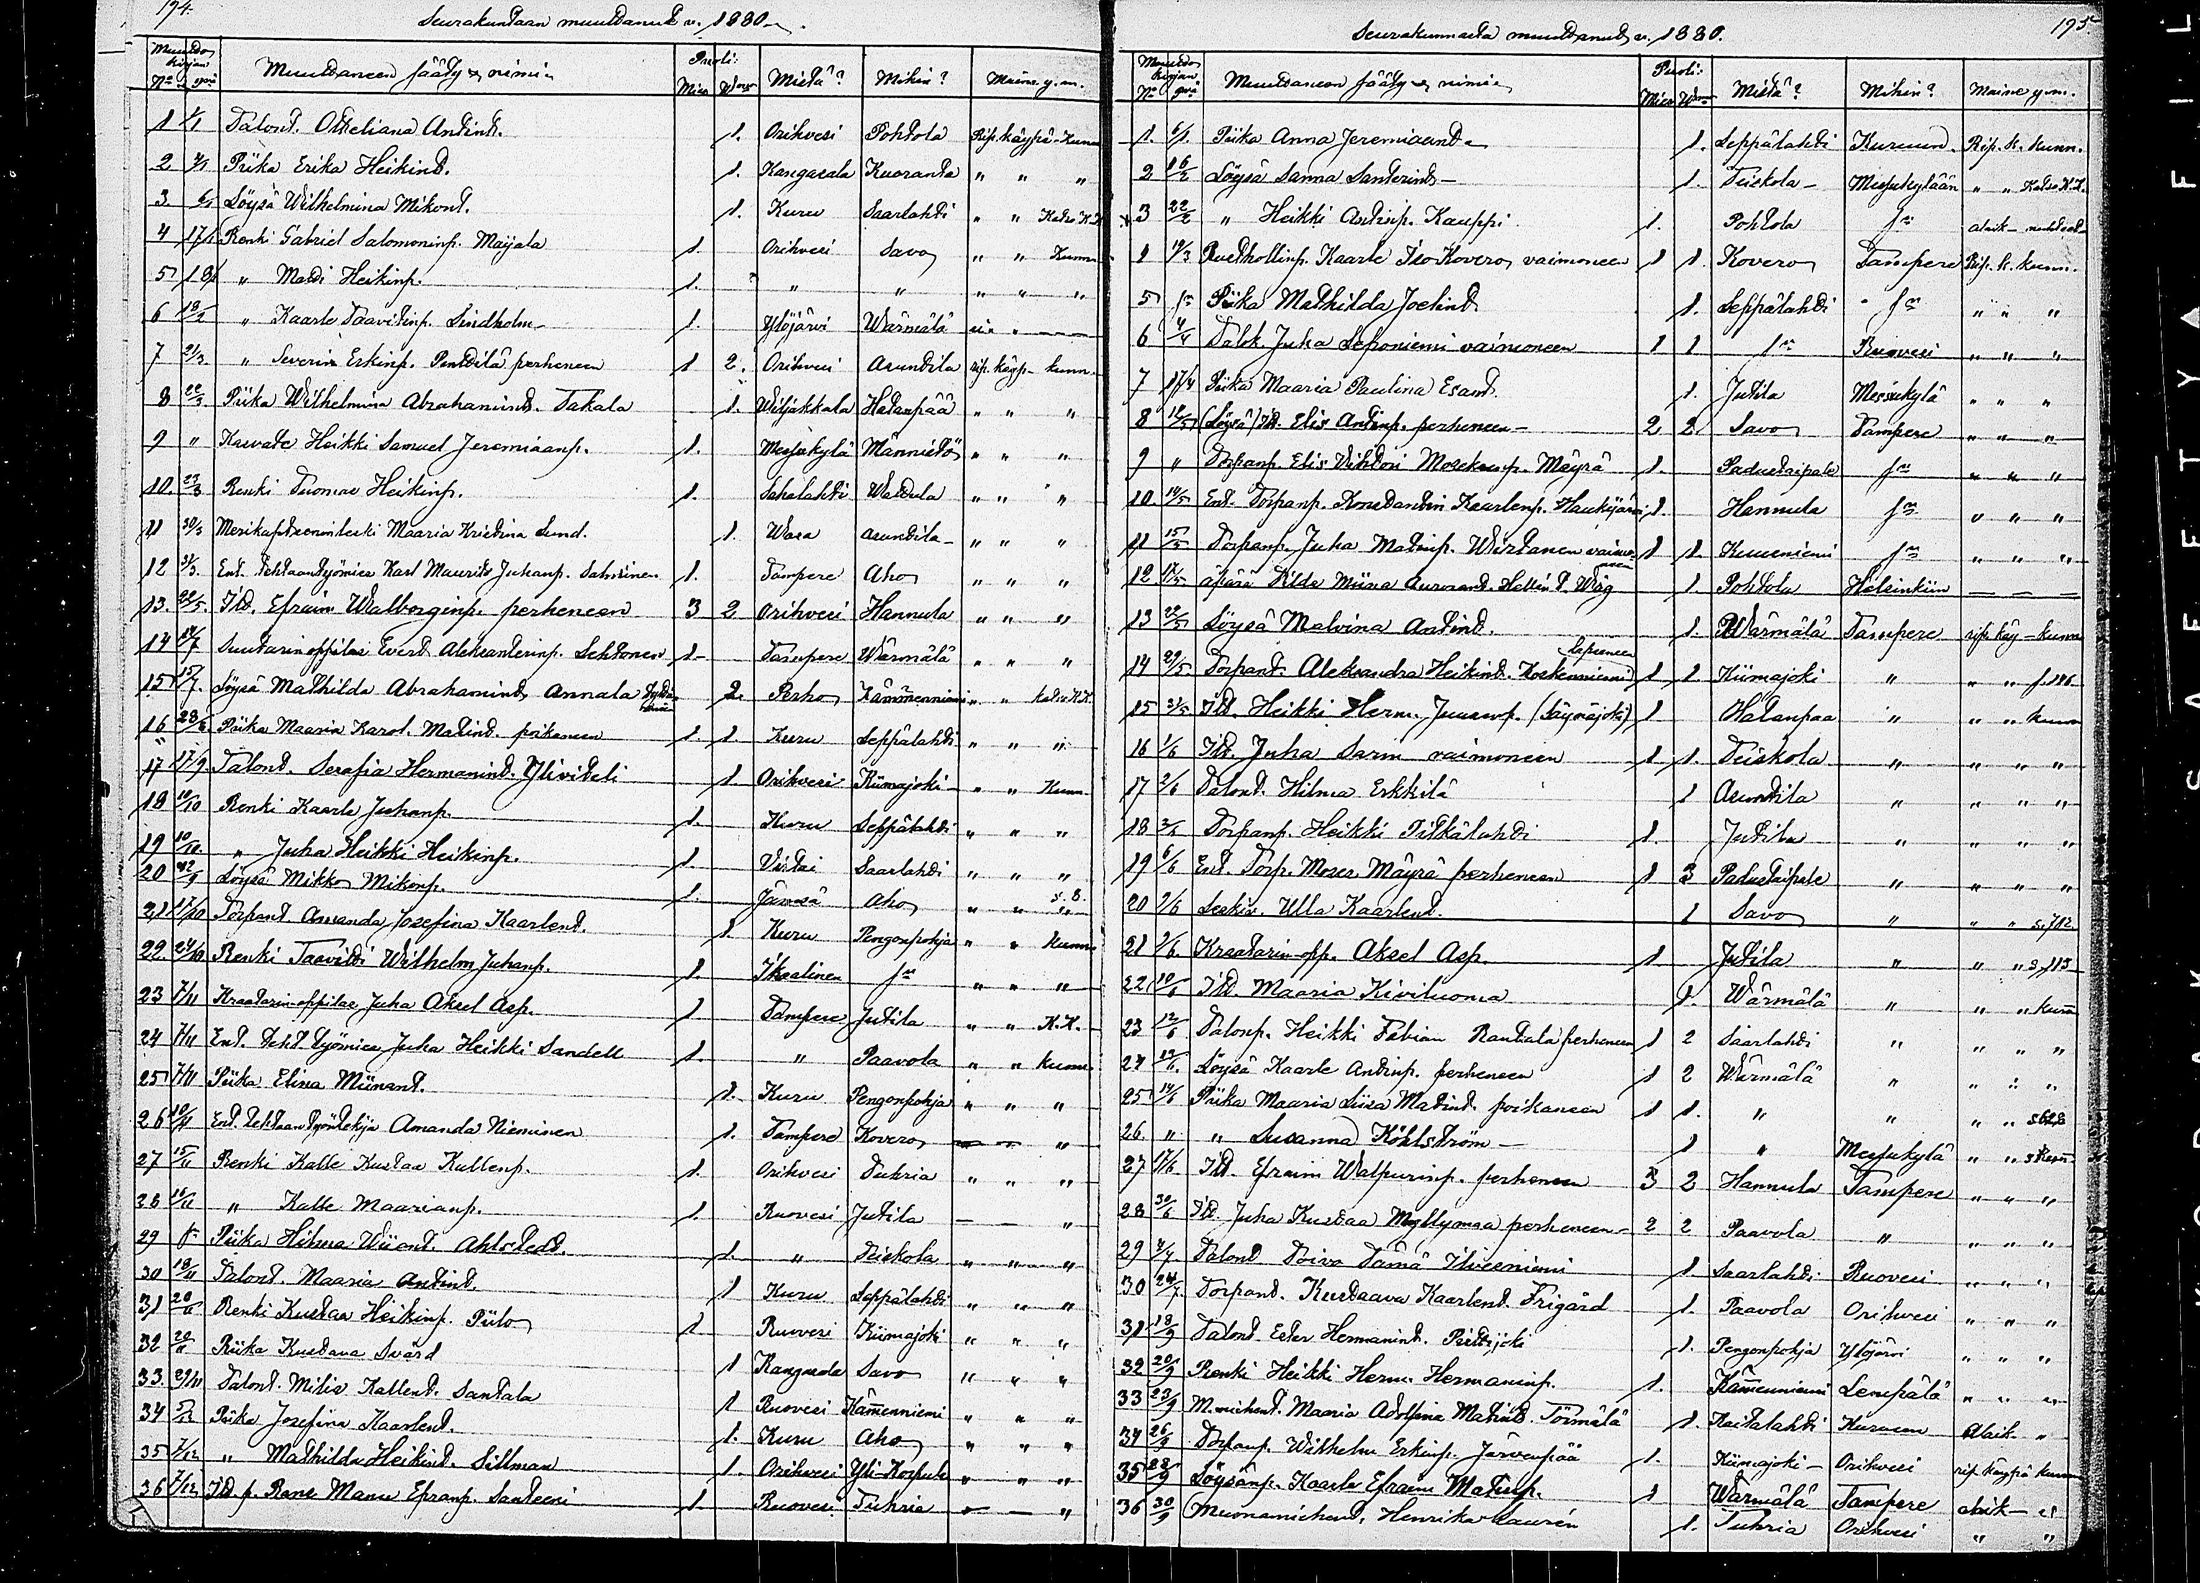 194.
Seurakuntaan muuttanut v. 1880.
Muutto kirjan
N:o
Muuttaneen sääty & nimi
Puoli:
Mies
Mistä?
Mihin?
Maine y.m.
1 Talont. Otteliana Antint. 1. Orihvesi Pohtola Rip. käypä. Kunn
2 Piika Erika Heikint. 1. Kangasala Kuoranta " " "
3 Löysä Wilhelmina Mikont. 1. Kuru Saarlahti " " Katso K.K.
4 17/1 Renki Gabriel Salomoninp. Maijala 1. Orihvesi Savo " " Kunn
5 " Matti Heikinp. 1. " " " " "
6 18/2 " Kaarle Taavetinp. Lindholm 1. Ylöjärvi Wärmälä
7 21/3 " Severin Erkinp. Penttilä perheneen 1 2. Orihvesi Asuntila rip. käyp. kunn.
8 22/3 Piika Wilhelmina Abrahamint. Takala 1. Wiljakkala Hatanpää " " "
9 " Kasvate Heikki Samuel Jeremiaanp. 1. Messukylä Männistö " " "
10. 27/3 Renki Tuomas Heikinp. 1. Sahalahti Wattula " " "
11 30/3 Merikapteeninleski Maaria Kristina Lund. 1. Wasa Asuntila " " "
12 31/3. Ent. Tehtaantyömies Karl Maurits Juhanp. Salminen 1. Tampere Aho " " "
13. 28/5. Itl. Efraim Walborginp. perheneen 3 2 Orihvesi Hannula " " "
14 14/7 Suutarinoppilas Evert Aleksanterinp. Lehtonen 1. Tampere Wärmälä " " "
15 15/7. Löysä Mathilda Abrahamint. Annala 2. Perho Kämmenniemi " " katso K.K.
16 28/8 Piika Maaria Karol. Matint. poikaneen 1. 1. Kuru Seppälahti " " "
17 17/9. Talont. Serafia Hermanint. Ylivideli 1 Orihvesi Kiimajoki " " Kunn.
18 10/10 Renki Kaarle Juhanp. 1. Kuru Seppälahti " " "
19 10/10. " Juha Heikki Heikinp. 1. Saarlahti " " "
20 Löysä Mikko Mikonp. 1. Jämsä Aho " "
21 17/10 Torpant. Amanda Josefina Kaarlent. 1. Kuru Pengonpohja " " kunn.
22. 24/10 Renki Taavidi Wilhelm Juhanp. 1. Ikaalinen s:n " " "
23 7/11 Kraatarin oppilas Juha Aksel Asp. 1 Tampere Jutila " " K.K.
24 7/11 Ent. teht. työmies Juha Heikki Sandell 1. " Paavola " " kunn.
25 7/11 Piika Elina Miinant. 1. Kuru Pengonpohja " " "
26 10/11 Ent. tehtaantyöntekijä Amanda Nieminen 1. Tampere Kovero — — "
27 15/11 Renki Kalle Kustaa Kallenp. 1. Orihvesi Tuhria " " "
28 16/11 " Kalle Maarianp. 1. Ruovesi Jutila — — "
29 Piika Hilma Wiiont. Ahlstedt. 1. " Teiskola " " "
30 18/11 Talont. Maaria Antint. 1 Kuru Seppälahti " " "
31 20/11 Renki Kustaa Heikinp. Piilo 1. Ruovesi Kiimajoki " " "
32 20/11 Piika Kustava Svärd 1 Kangasala Savo " " "
33. 29/11 Talont. Milia Kallent. Santala 1 Ruovesi Kämmenniemi " " "
34 5/12 Piika Josefina Kaarlent. 1. Kuru Aho " " "
35 7/12 " Mathilda Heikint. Sillman 1. Orihvesi Yli-Korpula " " "
36 7/12 Itl. p. Manu Efranp. 1. Ruovesi Tuhria — — "
195
Seurakunnasta muuttanut v. 1880.
Muutto kirjan
N:o
Muuttaneen sääty & nimi
Puoli:
Mies
Mistä?
Mihin?
Maine y.m.
1. 6/1. Piika Anna Jeremiaant. 1. Seppälahti Kuruun. Rip. k. kunn.
2 16/2 Löysä Sanna Santerint. 1. Teiskola Messukylään " " Katso K.K.
3 22/2 " Heikki Antinp. Kauppi 1. Pohtola s:n
19/3 Rusthollinp. Kaarle Iso-Kovero vaimoneen 1 1. Kovero Tampere Rip. k. kunn.
5 s:n Piika Mathilda Joelint. 1. Seppälahti s:n " " "
6 4/4 Talok. Juha Leponiemi vaimoneen 1 1 s:n Ruovesi " " "
7 17/4 Piika Maaria Paulina Esant. 1. Jutila Messukylä " " "
8 12/5 (Löysä) Itl. Elis Antinp. perheneen 2 2 Savo Tampere " " "
9 " Torpanp. Elis Vihtori Mosesenp. Mäyrä 1. Padustaipale s:n " " "
10. 14/5 Ent. Torpanp. Konstantin Kaarlenp. Haukijärvi 1. Hannula s:n " " "
11 15/5 Torpanp. Juha Matinp. Wirtanen vaimoneen 1 1. Kuusniemi s:n " " "
12 18/5 äpärä Tilda Miina Aurorant. 1. Pohtola Helsinkiin — — —
13 22/5 Löysä Malvina Antint. 1. Wärmälä Tampere rip. käy. kunn
14 29/5 Torpant. Aleksandra Heikint. Koskenniemi lapseneen 1 1 Kiimajoki " " "
15 31/5 Itl. Heikki Herm. Juusenp. (Säynäjoki) 1 Hatanpää " " " kunn
16 1/6 Itl. Juha Sarin vaimoneen 1 1. Teiskola " " " "
17 2/6 Talont. Hilma Erkkilä 1 Asuntila " " " "
18 3/6 Torpanp. Heikki Pitkälahti 1. Jutila " " " "
19 6/6 Ent. Torp. Moses Mäyrä perheneen 1 3 Padustaipale " " " "
20 7/6 Leskiv. Ulla Kaarlent. 1 Savo " " " s. 712.
21 7/6. Kraatarin opp. Aksel Asp. 1 Jutila " " " s. 115
22 10/6 Itl. Maaria Kiviluoma 1. Wärmälä " " " kunn
23 12/6 Talonp. Heikki Fabian Rantala perheneen 1 2 Saarlahti " " " "
24 12/6. Löysä Kaarle Antinp. perheneen 1 2 Wärmälä " " " "
25 14/6 Piika Maaria Liisa Matint. poikaneen 1 1. " " " " s. 628
26. " " Susanna Köhlström 1 " Messukylä " "
27 17/6 Itl. Efraim Walpurinp. perheneen 3 2 Hannula Tampere " " "
28 30/6 Itl. Juha Kustaa Myllyomaa perheneen 2 2 Paavola " " " "
29 4/7 Talont. Toivo Taimi Ilveeniemi 1 Saarlahti Ruovesi " " "
30 24/7 Torpant. Kustaava Kaarlent. Frigård 1. Paavola Orihvesi " " "
31 18/9 Talont. Ester Hermanint. 1. Pengonpohja Ylöjärvi " " "
32 20/9 Renki Heikki Herm. Hermaninp. 1. Kämmenniemi Lempälä " " "
33 23/9 M. miehent. Maaria Adolfina Matint. Törmälä 1. Kaitalahti Kuruun Alaik. "
34 26/9 Torpanp. Wilhelm Erkinp. Järvenpää 1. Kiimajoki Orihvesi rip. käypä kunn
35 28/9 Löysänp. Kaarle Efraim Matinp. 1 Wärmälä Tampere alaik. "
36 30/9 Muonamiehent. Henrika Laurén 1. Tuhria Orihvesi " "
SAFETY FILM
KODAK